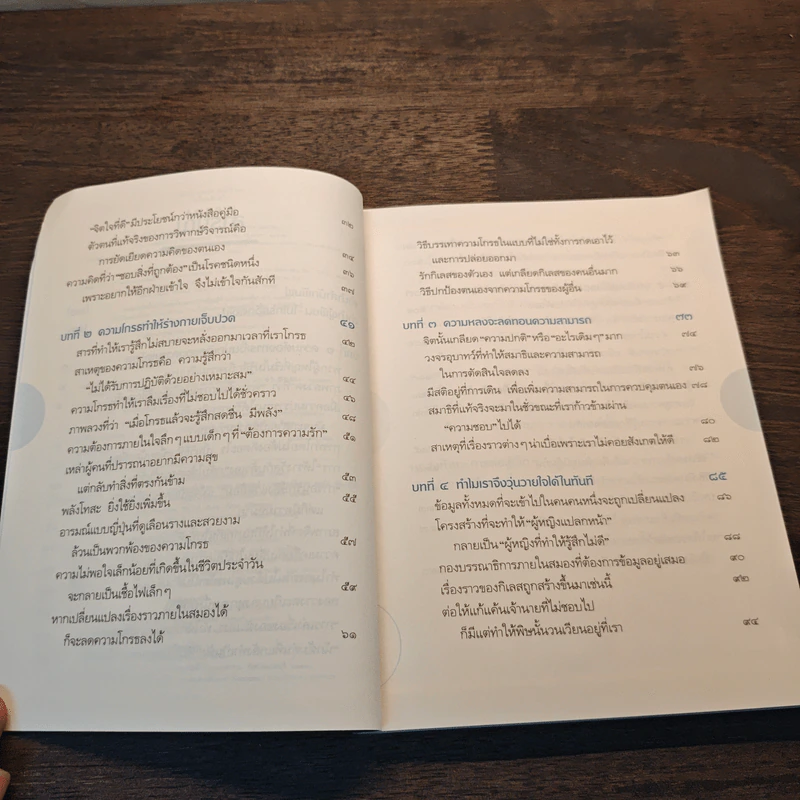 "จิตใจที่ดี" มีประโยชน์กว่าหนังสือคู่มือ ๓๒
ตัวตนที่แท้จริงของการวิพากษ์วิจารณ์คือ
การยัดเยียดความคิดของตนเอง ๓๔
ความคิดที่ว่า "ชอบสิ่งที่ถูกต้อง" เป็นโรคชนิดหนึ่ง ๓๖
เพราะอยากให้อีกฝ่ายเข้าใจ จึงไม่เข้าใจกันสักที ๓๗
บทที่ ๒ ความโกรธทำให้ร่างกายเจ็บปวด ๔๑
สารที่ทำให้เรารู้สึกไม่สบายจะหลั่งออกมาเวลาที่เราโกรธ ๔๒
สาเหตุของความโกรธคือ ความรู้สึกว่า
"ไม่ได้รับการปฏิบัติด้วยอย่างเหมาะสม" ๔๔
ความโกรธทำให้เราลืมเรื่องที่ไม่ชอบไปได้ชั่วคราว ๔๖
ภาพลวงที่ว่า "เมื่อโกรธแล้วจะรู้สึกสดชื่น มีพลัง" ๔๘
ความต้องการภายในใจลึกๆ แบบเด็กๆ ที่ "ต้องการความรัก" ๕๑
เหล่าผู้คนที่ปรารถนาอยากมีความสุข
แต่กลับทำสิ่งที่ตรงกันข้าม ๕๓
พลังโทสะ ยิ่งใช้ยิ่งเพิ่มขึ้น ๕๕
อารมณ์แบบญี่ปุ่นที่ดูเลือนรางและสวยงาม
ล้วนเป็นพวกพ้องของความโกรธ ๕๗
ความไม่พอใจเล็กน้อยที่เกิดขึ้นในชีวิตประจำวัน
จะกลายเป็นเชื้อไฟเล็กๆ ๕๙
หากเปลี่ยนแปลงเรื่องราวภายในสมองได้
ก็จะลดความโกรธลงได้ ๖๑
วิธีบรรเทาความโกรธในแบบที่ไม่ใช่ทั้งการกดเอาไว้
และการปล่อยออกมา ๖๓
รักกิเลสของตัวเอง แต่เกลียดกิเลสของคนอื่นมาก ๖๖
วิธีปกป้องตนเองจากความโกรธของผู้อื่น ๖๙
บทที่ ๓ ความหลงจะลดทอนความสามารถ ๗๓
จิตนั้นเกลียด "ความปกติ" หรือ "อะไรเดิมๆ" มาก ๗๔
วงจรอุบาทว์ที่ทำให้สมาธิและความสามารถ
ในการตัดสินใจลดลง ๗๖
มีสติอยู่ที่การเดิน เพื่อเพิ่มความสามารถในการควบคุมตนเอง ๗๘
สมาธิที่แท้จริงจะมาในชั่วขณะที่เราก้าวข้ามผ่าน
"ความชอบ" ไปได้ ๘๐
สาเหตุที่เรื่องราวต่างๆ น่าเบื่อเพราะเราไม่คอยสังเกตให้ดี ๘๒
บทที่ ๔ ทำไมเราจึงวุ่นวายใจได้ในทันที ๘๕
ข้อมูลทั้งหมดที่จะเข้าไปในคนคนหนึ่งจะถูกเปลี่ยนแปลง ๘๖
โครงสร้างที่จะทำให้ "ผู้หญิงแปลกหน้า"
กลายเป็น "ผู้หญิงที่ทำให้รู้สึกไม่ดี" ๘๘
กองบรรณาธิการภายในสมองที่ต้องการข้อมูลอยู่เสมอ ๙๐
เรื่องราวของกิเลสถูกสร้างขึ้นมาเช่นนี้ ๙๒
ต่อให้แก้แค้นเจ้านายที่ไม่ชอบไป
ก็มีแต่ทำให้พิษนั้นวนเวียนอยู่ที่เรา ๙๔